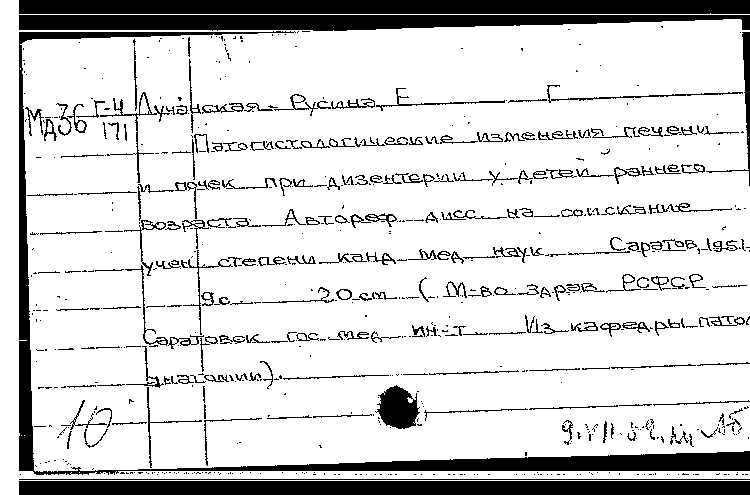 МД36 Г-4 Лучанская-Русина, Е Г
171
Патогистологические изменения печени
и почек при дизентерии у детей раннего
возраста Автореф дисс. на соискание
учен степени канд мед наук Саратов, 1951.
9с. 20см (М-во здрав РСФСР
Саратовск гос мед ин-т Из кафедры патол
анатомии).
10